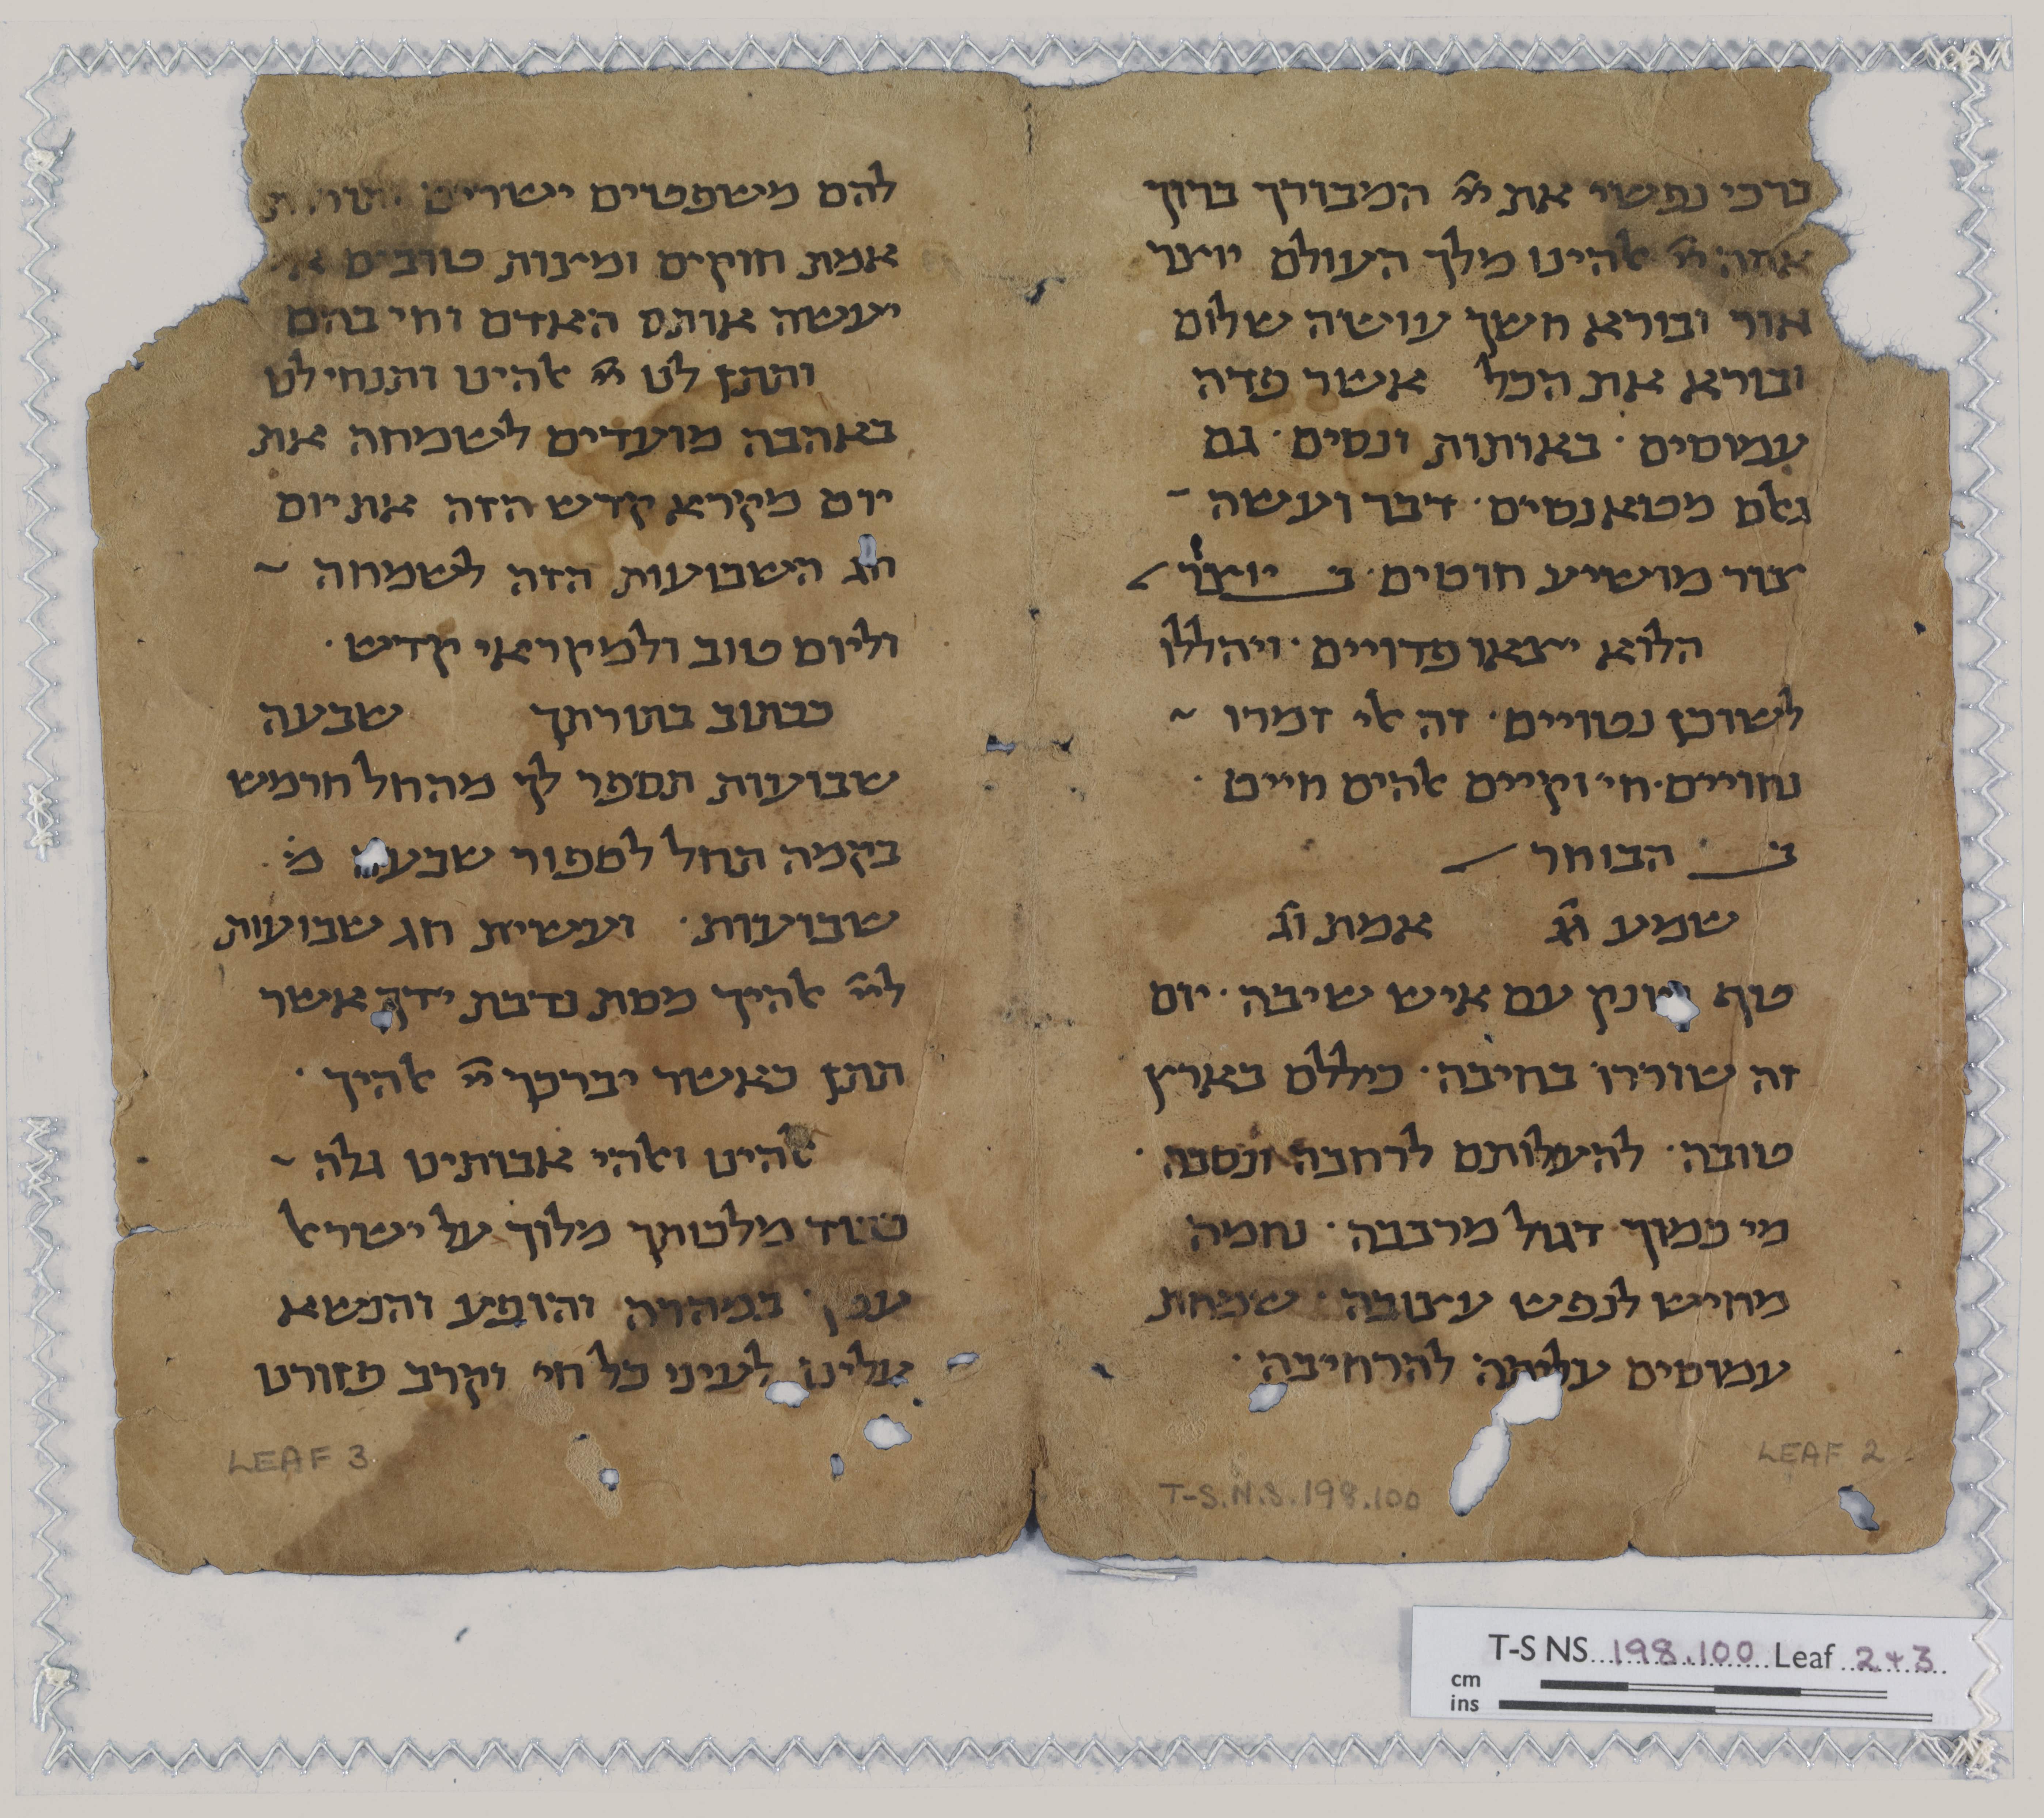 ברכי נפשי את ייי המבורך ברוך
אתה ייי אלהינו מלך העולם יוצר
אור ובורא חשך עושה שלום
ובורא את הכל אשר פדה
עמוסים · באותות ונסים · גם
גאלם מטאנסים · דבר ועשה ~
צור מושיע חוסים · ב יוצר
הלוא יצאו פדויים · ויהללו
לשוכן נטויים · זה אלי זמרו ~
נחויים · חי וקיים אלהים חיים ·
ב הבוחר
שמע וג אמת וג
טף ויונק עם איש שיבה · יום
זה שוררו בחיבה · כיללם בארץ
טובה · להעלותם לרחבה ונסבה ·
מי כמוך דגול מרבבה · נחמה
מחיש לנפש עצובה · שמחת
עמוסים עליתה להרחיבה ·
LEAF 2
T-S.N.S. 198.100
להם משפטים ישרים
אמת חוקים ומצות טובים
יעשה אותם האדם וחי בהם
ותתן לנו ייי אלהינו ותנחילנו
באהבה מועדים לשמחה את
יום מקרא קדש הזה את יום
חג השבועות הזה לשמחה ~
וליום טוב ולמקראי קדש ·
ככתוב בתורתך שבעה
שבועות תספר לך מהחל חרמש
בקמה תחל לספור שבעה
שבועות · ועשית חג שבועות
לייי אלהיך מסת נדבת ידך אשר
תתן כאשר יברכך ייי אלהיך ·
אלהינו ואלהי אבותינו גלה ~
כבוד מלכותך מלוך על ישראל
עמך במהרה והופע והנשא
עלינו לעיני כל חי וקרב פזורנו
LEAF 3
T-S NS 198.100 Leaf 2+3
cm
ins